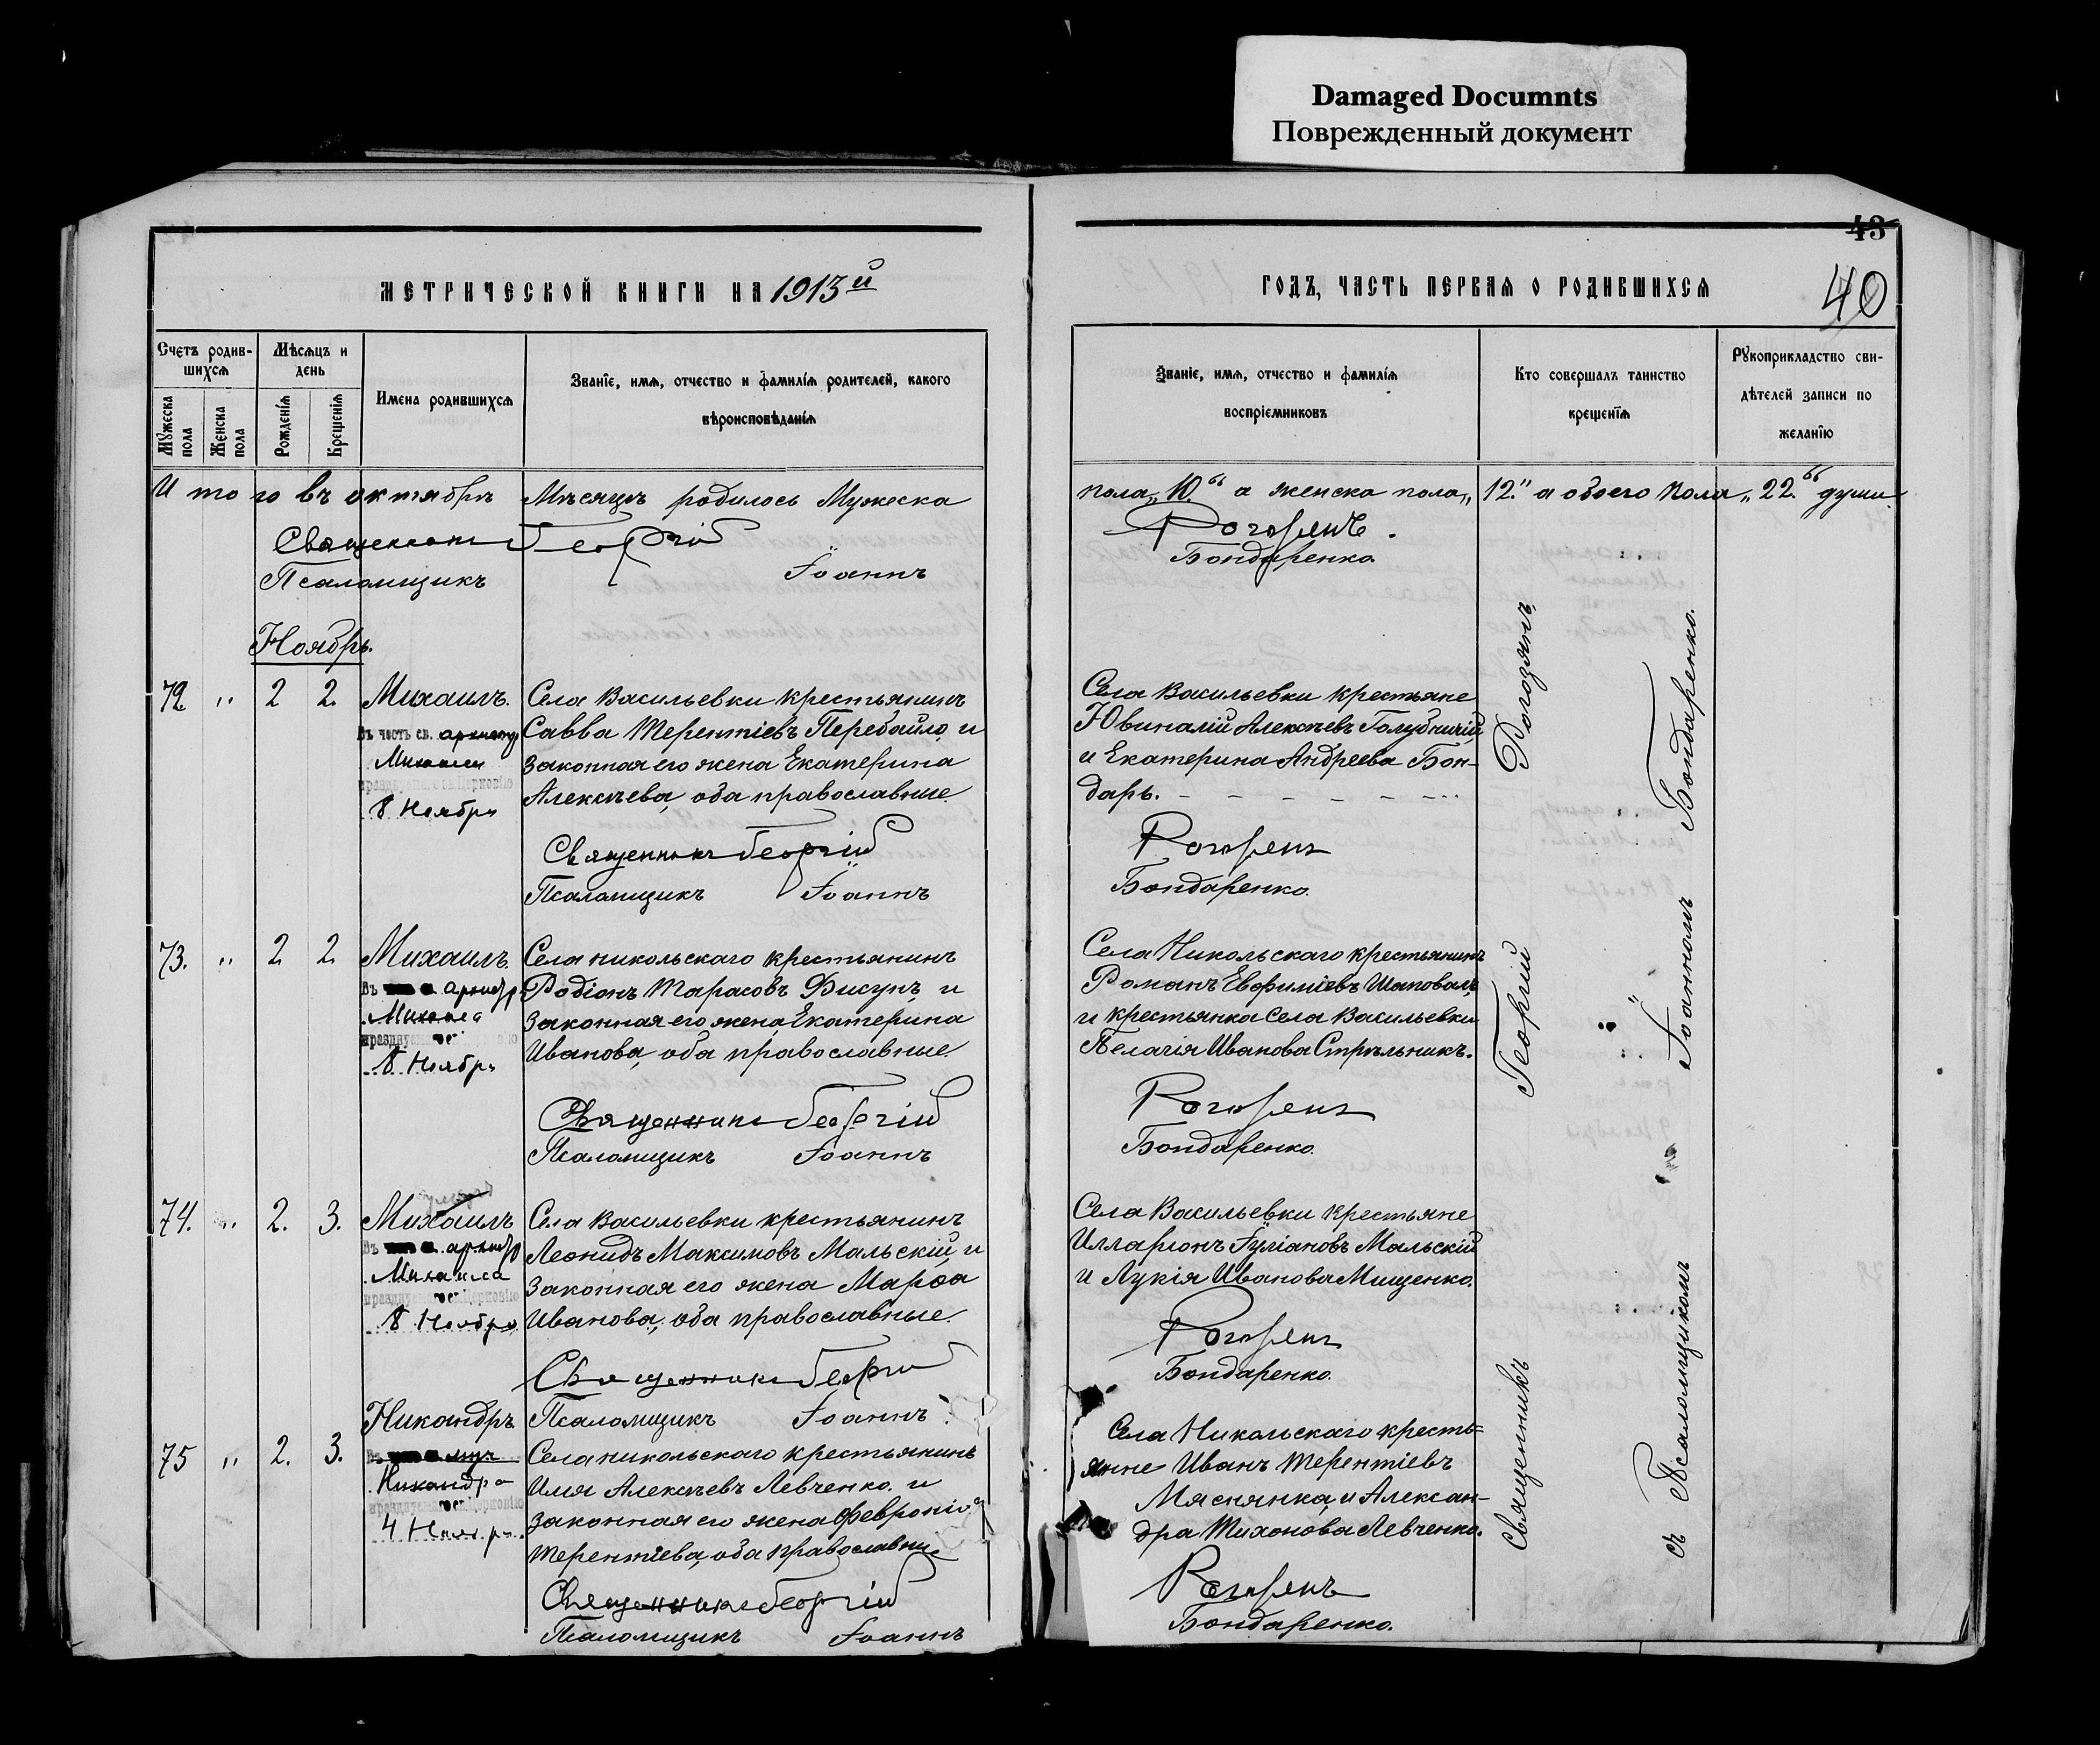 Damaged Documnts
Поврежденный документ
43
МЕТРИЧЕСКОЙ КНИГИ НА 1913й
ГОДЪ, ЧАСТЬ ПЕРВАЯ О РОДИВШИХСЯ
40
Счетъ родив-
шихся
Мѣсяцъ и
день
Мужеска
пола
Женска
пола
Рожденія
Крещенія
Имена родившихся
Званіе, имя, отчество и фамилія родителей, какого
вѣроисповѣданія
Званіе, имя, отчество и фамилія
воспріемниковъ
Кто совершалъ таинство
крещенія
Рукоприкладство сви-
дѣтелей записи по
желанію
Итого въ октябрѣ Мѣсяцѣ родилось Мужеска
пола „10“ а женска пола „12.“ а обоего пола „22.“ души
Священникъ Георгій
Псаломщикъ Іоаннъ
Бондаренко.
Ноябрь.
72. „ 2 2. Михаилъ.
Въ честь св. архистр
Михаила
празднуемаго св. Церковію
8 Ноября
Села Васильевки крестьянинъ
Савва Терентіевъ Перебайло, и
законная его жена Екатерина
Алексѣева, оба православные.
Священникъ Георгій
Псаломщикъ Іоаннъ
Села Васильевки крестьяне
Ювиналій Алексѣевъ Голубничій
и Екатерина Андреева Бон-
дарь.
Бондаренко.
73. „ 2 2. Михаилъ.
Въ архистр.
Михаила
8 Ноября
Села Никольскаго крестьянинъ
Родіонъ Тарасовъ Фисунъ, и
законная его жена Екатерина
Иванова, оба православные.
Священникъ Георгій
Псаломщикъ Іоаннъ
Села Никольскаго крестьянинъ
Романъ Евфиміевъ Шаповалъ
и крестьянка села Васильевки
Пелагія Иванова Стрѣльникъ.
Бондаренко.
74. „ 2. 3. Михаилъ
Въ архистр
Михаила
8 Ноября
Села Васильевки крестьянинъ
Леонидъ Максимовъ Мальскій, и
законная его жена Марѳа
Иванова, оба православные.
Священникъ Георгій
Псаломщикъ Іоаннъ
Села Васильевки крестьяне
Илларіонъ Іуліановъ Мальскій
и Лукія Иванова Мищенко.
Бондаренко.
75 „ 2. 3. Никандръ
Въ муч
Никандра
4 Ноября
Села Никольскаго крестьянинъ
Илія Алексѣевъ Левченко, и
законная его жена Февронія
Терентіева, оба православные
Священникъ Георгій
Псаломщикъ Іоаннъ
Села Никольскаго кресть=
янне Иванъ Терентіевъ
Мяснянка, и Алексан-
дра Тихонова Левченко.
Бондаренко.
Священникъ Георгій Рогозянъ,
съ Псаломщикомъ Іоанномъ Бондаренко.